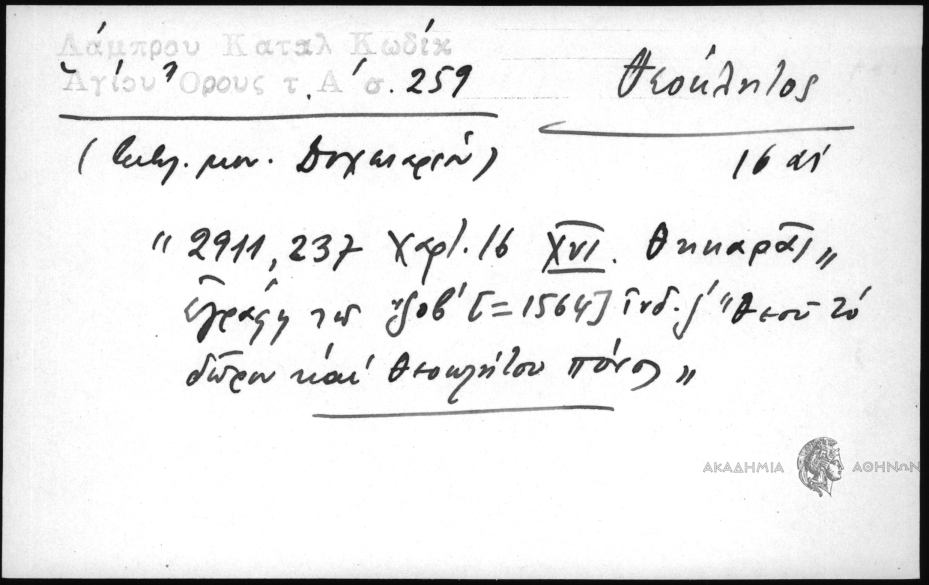 Λάμπρου Καταλ Κωδίκ
Ἁγίου Ὄρους τ. Α΄ σ. 259
Θεόκλητος
μον. Δοχειαρίου)
16 αἰ
"2911, 237 Χαρτ. 16 XVI. Θηκαρᾶς"
ἐγράφη τῷ ͵ζοβ΄ [=1564] ἰνδ. ζ "Θεοῦ τὸ
δῶρον καὶ Θεοκλήτου πόνος"
ΑΚΑΔΗΜΙΑ ΑΘΗΝΩΝ